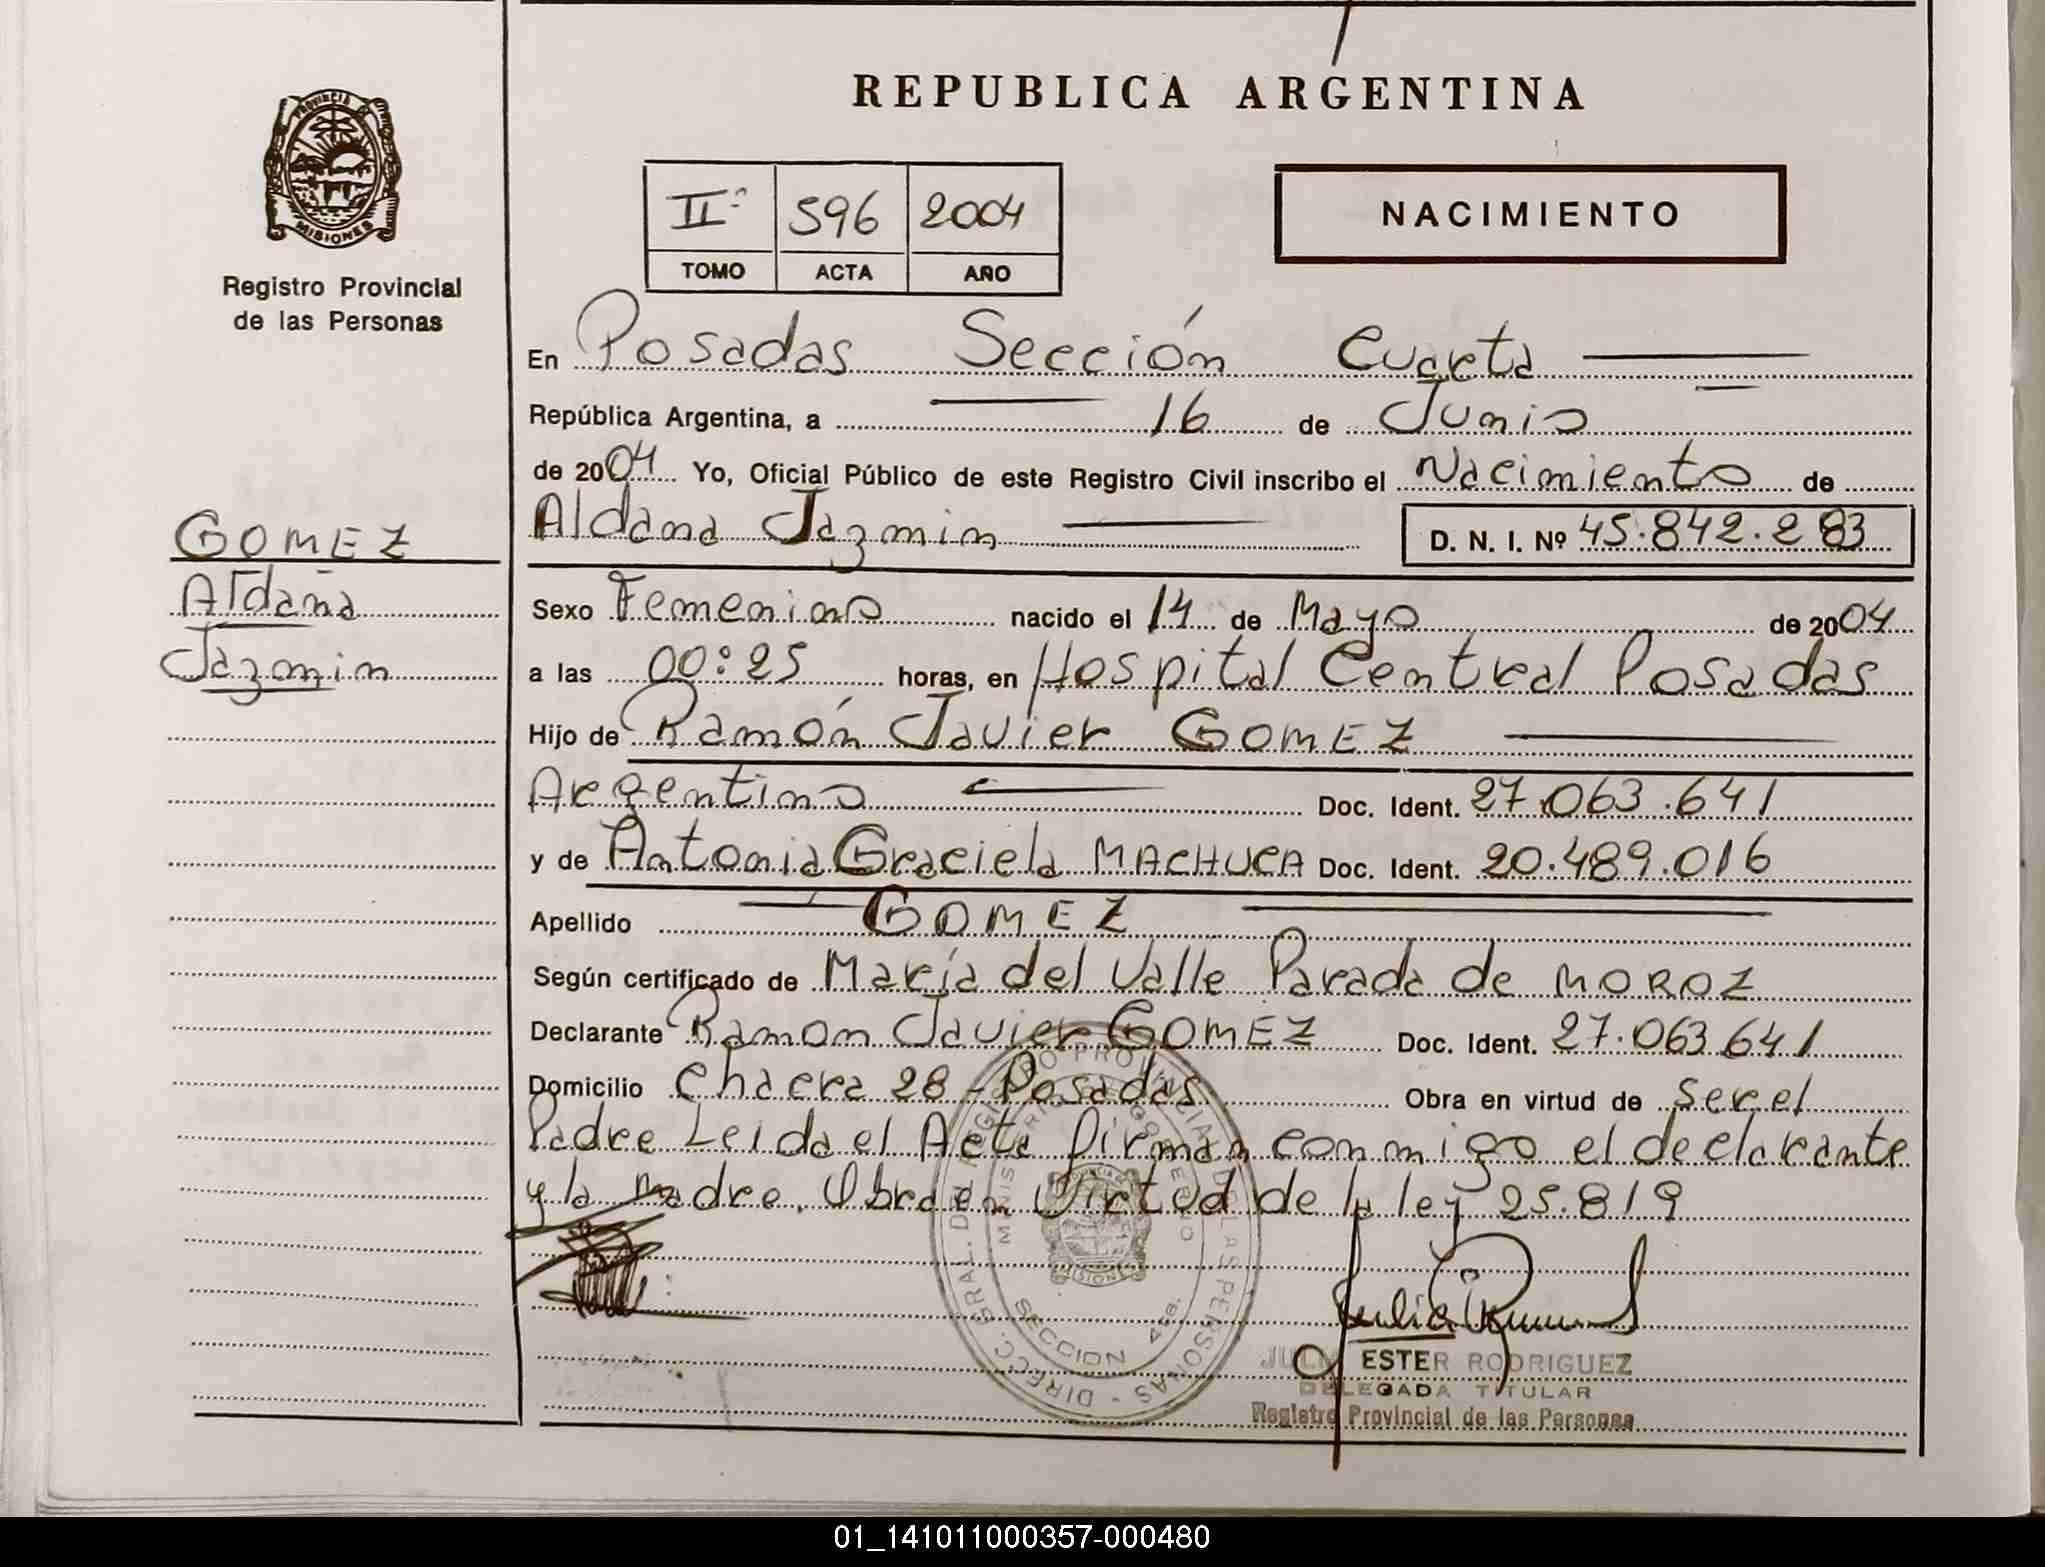 REPUBLICA ARGENTINA
PROVINCIA DE
MISIONES
Registro Provincial
de las Personas
IIº 596 2004
TOMO ACTA AÑO
NACIMIENTO
En Posadas Sección Cuarta
República Argentina, a 16 de Junio
de 2004 Yo, Oficial Público de este Registro Civil inscribo el Nacimiento de
Aldana Jazmin D. N. I. Nº 45.842.283
GOMEZ
Aldana
Jazmin
Sexo Femenino nacido el 14 de Mayo de 2004
a las 00:25 horas, en Hospital Central Posadas
Hijo de Ramón Javier GOMEZ
Argentino Doc. Ident. 27.063.641
y de Antonia Graciela MACHUCA Doc. Ident. 20.489.016
Apellido GOMEZ
Según certificado de María del Valle Parada de MOROZ
Declarante Ramon Javier GOMEZ Doc. Ident. 27.063.641
Domicilio Chacra 28 - Posadas Obra en virtud de ser el
Padre Leida el Acta firman conmigo el declarante
y la madre. Obra en Virtud de la ley 25.819
DIRECC. GRAL. DEL REGISTRO PROVINCIAL DE LAS PERSONAS
SECCION 4ta.
MISIONES
JULIA ESTER RODRIGUEZ
DELEGADA TITULAR
Registro Provincial de las Personas
01_141011000357-000480